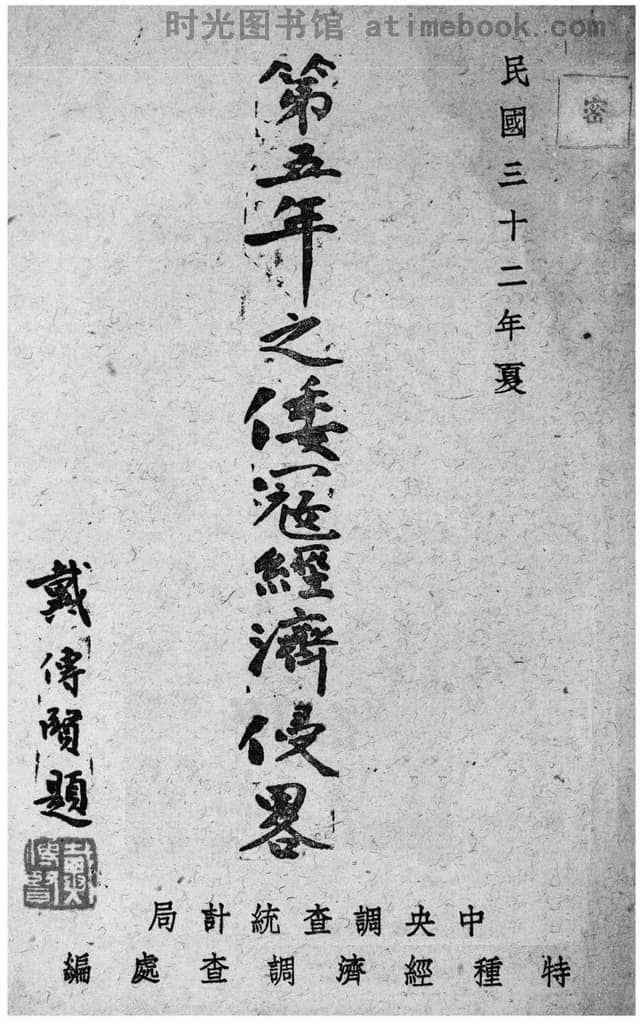 时光图书馆 atimebook.com
密
民國三十二年夏
第五年之倭寇經濟侵畧
戴傳賢題
戴傳賢
中央調查統計局
特種經濟調查處編